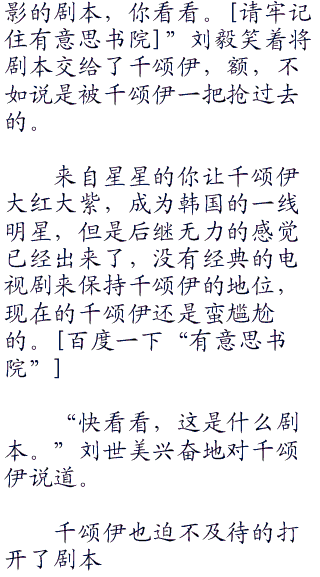 影的剧本，你看看。[请牢记
住有意思书院]”刘毅笑着将
剧本交给了千颂伊，额，不
如说是被千颂伊一把抢过去
的。
来自星星的你让千颂伊
大红大紫，成为韩国的一线
明星，但是后继无力的感觉
已经出来了，没有经典的电
视剧来保持千颂伊的地位，
现在的千颂伊还是蛮尴尬
的。[百度一下“有意思书
院”]
“快看看，这是什么剧
本。”刘世美兴奋地对千颂
伊说道。
千颂伊也迫不及待的打
开了剧本